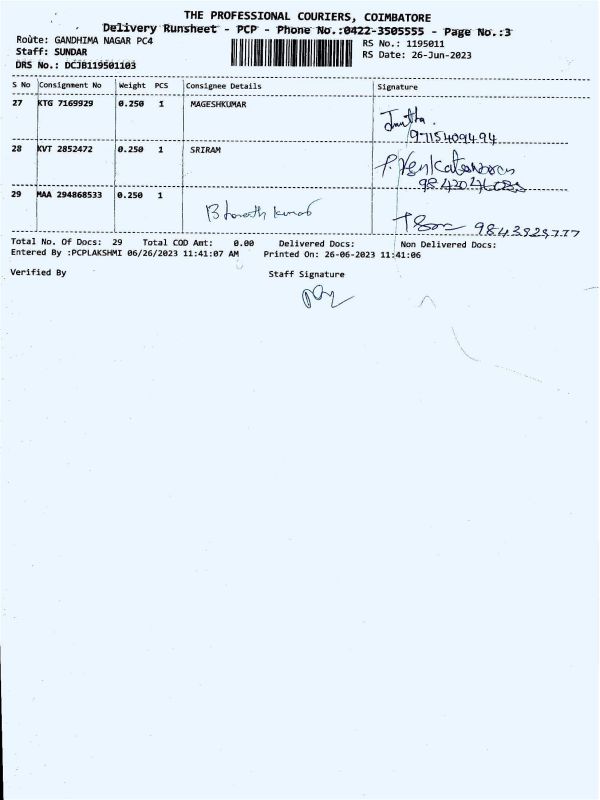 THE PROFESSIONAL COURIERS, COIMBATORE
Delivery Runsheet - PCP - Phone No.:0422-3505555 - Page No.:3
Route: GANDHIMA NAGAR PC4 RS No.: 1195011
Staff: SUNDAR RS Date: 26-Jun-2023
DRS No.: DCJB119501103
S No Consignment No Weight PCS Consignee Details Signature
27 KTG 7169929 0.250 1 MAGESHKUMAR
9715409494
28 KVT 2852472 0.250 1 SRIRAM
P. Venkateswaran
29 MAA 294868533 0.250 1
Bharath kumar
Total No. Of Docs: 29 Total COD Amt: 0.00 Delivered Docs: Non Delivered Docs:
Entered By :PCPLAKSHMI 06/26/2023 11:41:07 AM Printed On: 26-06-2023 11:41:06
Verified By Staff Signature